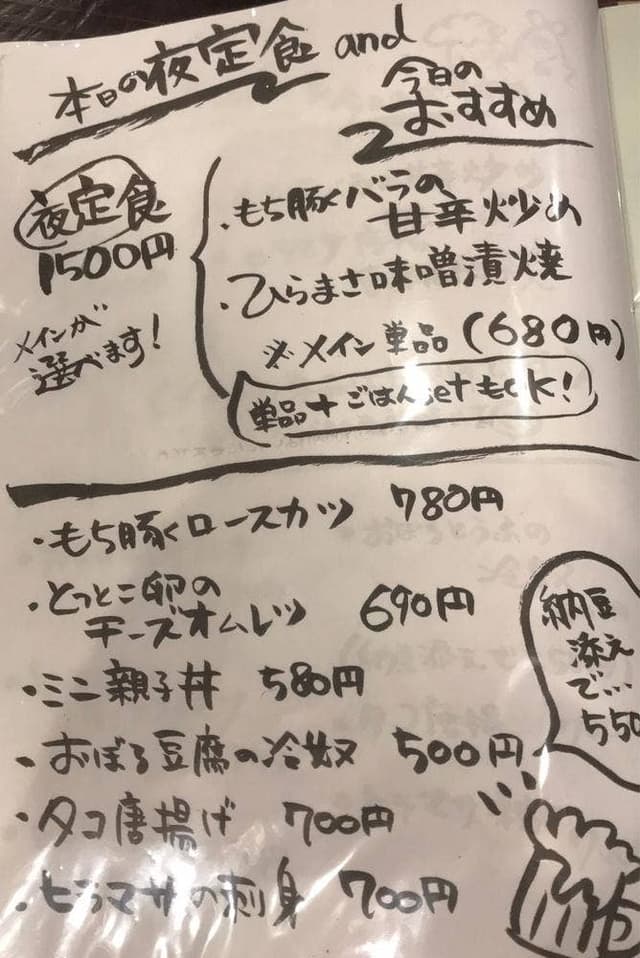 本日の夜定食 and
今日の
おすすめ
夜定食
1500円
メインが
選べます!
・もち豚バラの
甘辛炒め
・ひらまさ味噌漬焼
※メイン単品(680円)
単品+ごはんsetもOK!
・もち豚ロースカツ 780円
・とっとこ卵の
チーズオムレツ 690円
・ミニ親子丼 580円
・おぼろ豆腐の冷奴 500円
納豆
添え
で...
550
・タコ唐揚げ 700円
・ヒラマサの刺身 700円